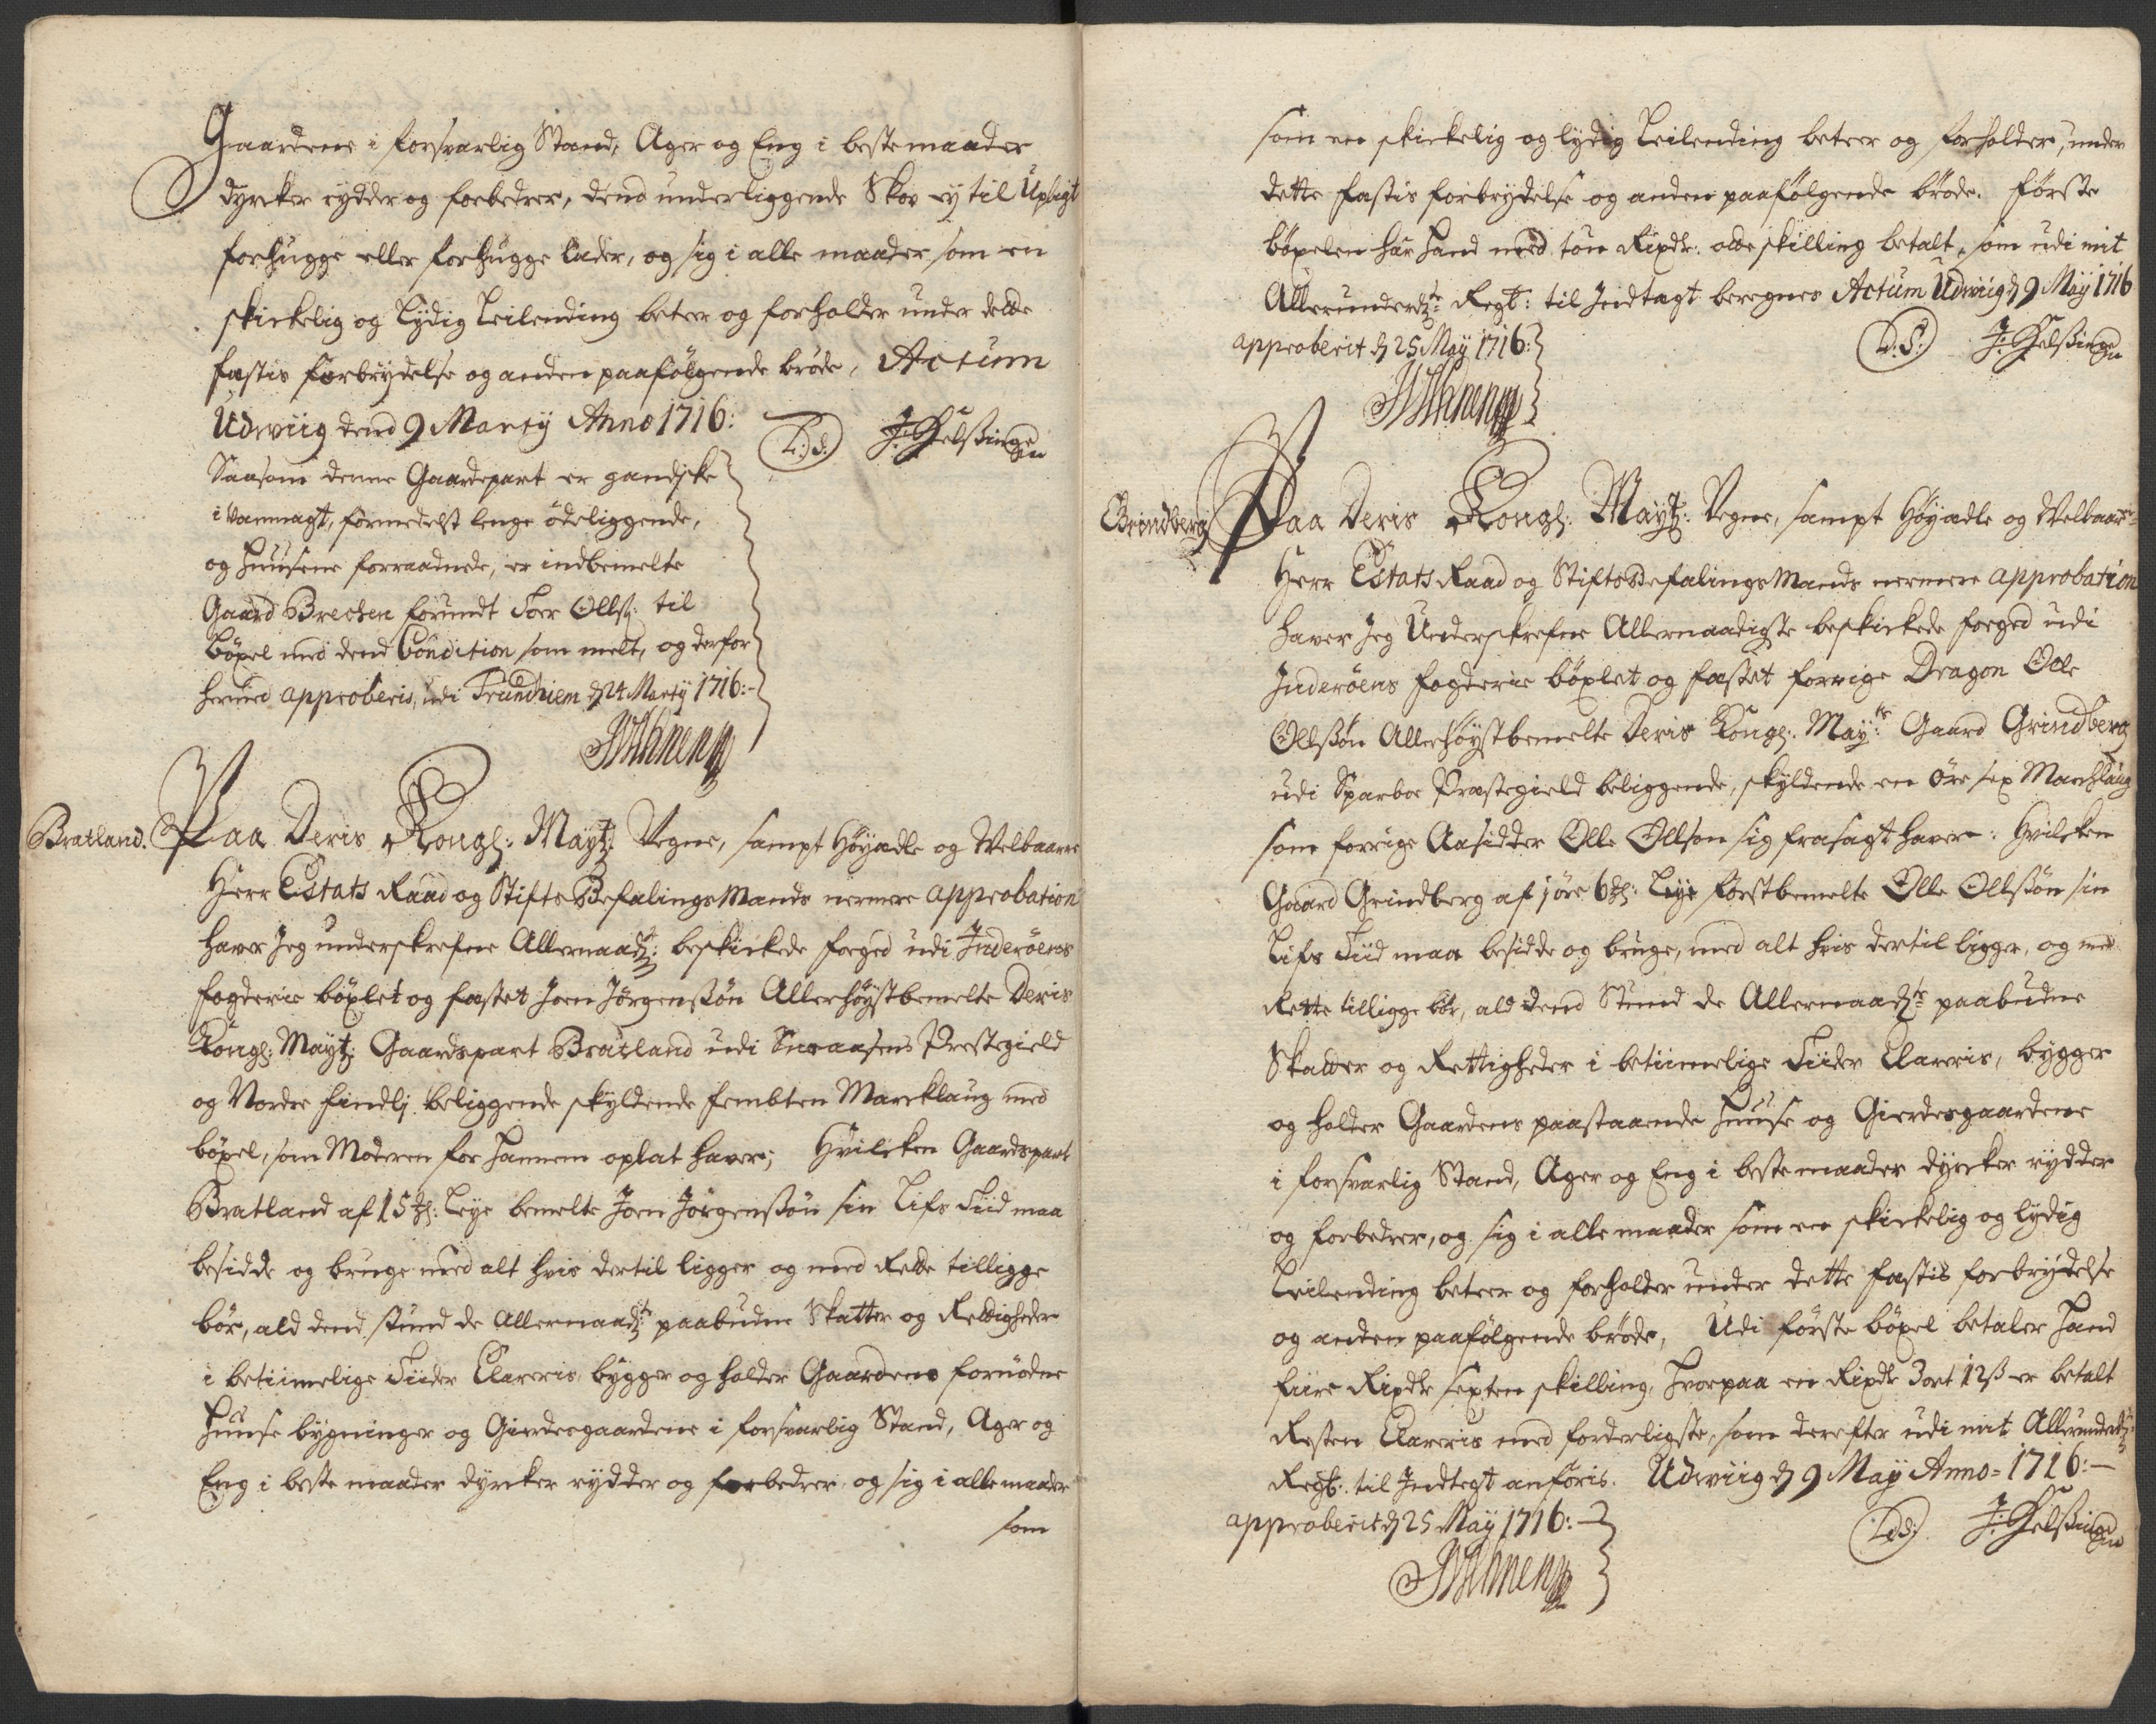 Gaardene i forsvarlig Stand, Ager og Eng i beste maader
dyrcker rydder og forbedrer, dend underliggende Skov ey til Upligt
forhugge eller forhugge lader, og sig i alle maader som en
skickelig og Lydig Leilending beteer og forholder under dette
festis forbrydelse og anden paafølgende brøde, Actum
Udwiig dend 9 Marty Anno 1716:
L:S: J: Helssingen
Saasom denne Gaardepart er gandske
i vanmagt, formedelst lenge ødeliggende,
og Huusene forraadnede, er indbemelte
Gaard Brechen forundt Toer Ollß: til
Böxel med dend Condition som melt, og derfor
hermed approberis, udi Trundhiem d 24 Marty 1716:-
Bratland.
Paa Deris Kongl: Mayt: Vegne, sampt Høyædle og Welbaarne
Herr Estats Raad og Stifts Befalings Mands nermere approbation
haver Jeg underskrefne Allernaadt: beskickede foged udi Inderöens
fogderie böxlet og festet Joen Jörgenßön Allerhöystbemelte Deris
Kongl: Mayt: Gaardspart Bratland udi Snaasens Prestegield
og Nordre findlj beliggende skyldende fembten Marcklaug med
böxel, som Moderen for hannem oplat haver; Hvilcken Gaardspart
Bratland af 15 ℔: Leye bemelte Joen Jörgenßön sin Lifs Tiid maa
besidde og bruge med alt hvis dertil ligger og med Rette tilligge
bör, ald dend stund de Allernaadt: paabudne Skatter og Rettigheder
i betiimelige Tiider Clareris, bygger og holder Gaardens fornødne
Huuse bygninger og Gierdesgaardene i forsvarlig Stand, Ager og
Eng i beste maader dyrcker rydder og forbedrer, og sig i alle maader
som
som en skickelig og lydig Leilending beteer og forholder, under
dette festis forbrydelse og anden paafølgende brøde. Förste
böxelen har hand med Rixdr: otte skilling betalt, som udi mit
Allerunderdte Regt: til Indtegt beregnes Actum Udwiig d 9 May 1716
approberit d 25 May 1716:
L:S: J: Helssingen
Grindberg
Paa Deris Kongl: Mayt: Vegne, sampt Høyædle og Welbaarne
Herr Estats Raad og Stifts Befalings Mands nermere approbation
haver Jeg Underskrefne Allernaadigste beskickede foged udi
Inderöens fogderie böxlet og festet forrige Dragon Olle
Ollßön Allerhöystbemelte Deris Kongl: Mayts: Gaard Grindberg
udi Sparboe Præstegield beliggende, skyldende en Øre sex Marcklaug
som forrige Aasidder Olle Ollson sig frasagt haver: Hvilcken
Gaard Grindberg af 1 öre 6 ℔: Leye förstbemelte Olle Ollßön sin
Lifs Tiid maa besidde og bruge, med alt hvis dertil ligger, og med
Rette tilligge bör, ald dend Stund de Allernaadte paabudne
Skatter og Rettigheder i betiimelige Tiider Clareris, bygger
og holder Gaardens paastaaende Huuse og Gierdesgaardene
i forsvarlig Stand, Ager og Eng i beste maader dyrcker rydder
og forbedrer, og sig i alle maader som en skickelig og lydig
Leilending beteer og forholder under dette festis forbrydelse
og anden paafølgende brøde, Udi förste böxel betaler hand
fiire Rixdr sexten skilling, hvorpaa en Rixdr 3 ort 12 ß er betalt
Resten Clareris med forderligste, som derefter udi mit Allerunderdte
Regt: til Indtegt anföris. Udwiig d 9 May Anno 1716:-
approberit d 25 May 1716:-
L:S: J: Helssingen